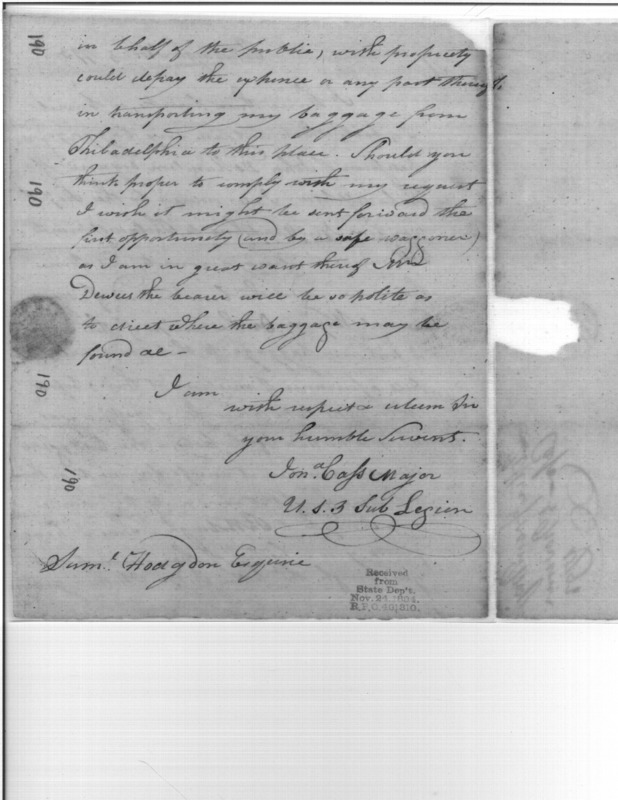 in behalf of the public, with propriety
could defray the expence or any part thereof
in transporting my baggage from
Philadelphia to this place. Should you
think proper to comply with my request
I wish it might be sent forward the
first opportunity (and by a safe waggoner)
as I am in great want thereof
Dewees the bearer will be so polite as
to direct where the baggage may be
found &c –
I am
with respect & esteem Sir
your humble Servent.
Jonª. Cass Major
U.S. 3 Sub Legion
Samˡ. Hodgdon Esquire
Received
from
State Dep't.
Nov. 24, 1894.
R.P.O. 401810.
190
190
190
190